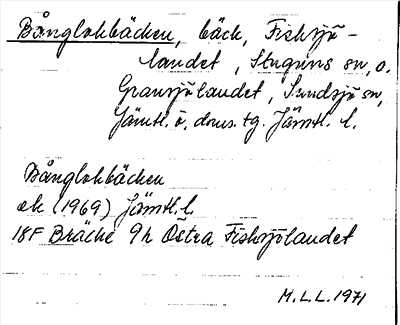 Bånglokbäcken, bäck, Fisksjö-
landet, Stuguns sn, o.
Gransjölandet, Sundsjö sn,
Jämtl. ö. doms. tg. Jämtl. l.
Bånglokbäcken
ek (1969) Jämtl. l.
18F Bräcke 9h Östra Fisksjölandet
M.L.L. 1971